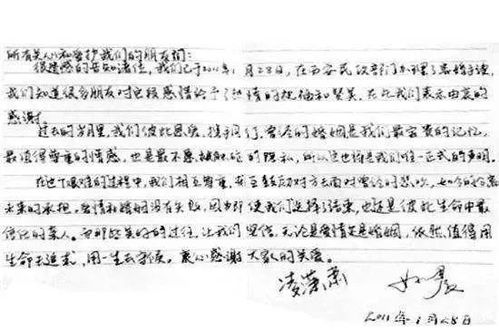 所有关心和爱护我们的朋友们：
很遗憾的告知诸位，我们已于2011年1月28日，在西安民政部门办理了离婚手续，
我们知道很多朋友对这段感情给予了热情的祝福和赞美，在此我们表示由衷的
感谢。
过去的岁月里，我们彼此恩爱，携手同行，曾经的婚姻是我们最宝贵的记忆，
最值得尊重的情感，也是最不愿被触碰的隐私，所以这也将是我们唯一正式的声明。
在这个艰难的过程中，我们相互尊重，甚至鼓励对方去面对曾经的悲欢，如今的
未来的承担。爱情和婚姻没有失败，因为即使我们选择了结束，也还是彼此生命中最
信任的亲人。而那些美好的过往，让我们坚信，无论是爱情还是婚姻，依然值得用
生命去追求，用一生去守候。衷心感谢大家的关爱。
凌潇肃 姚晨
2011年1月28日